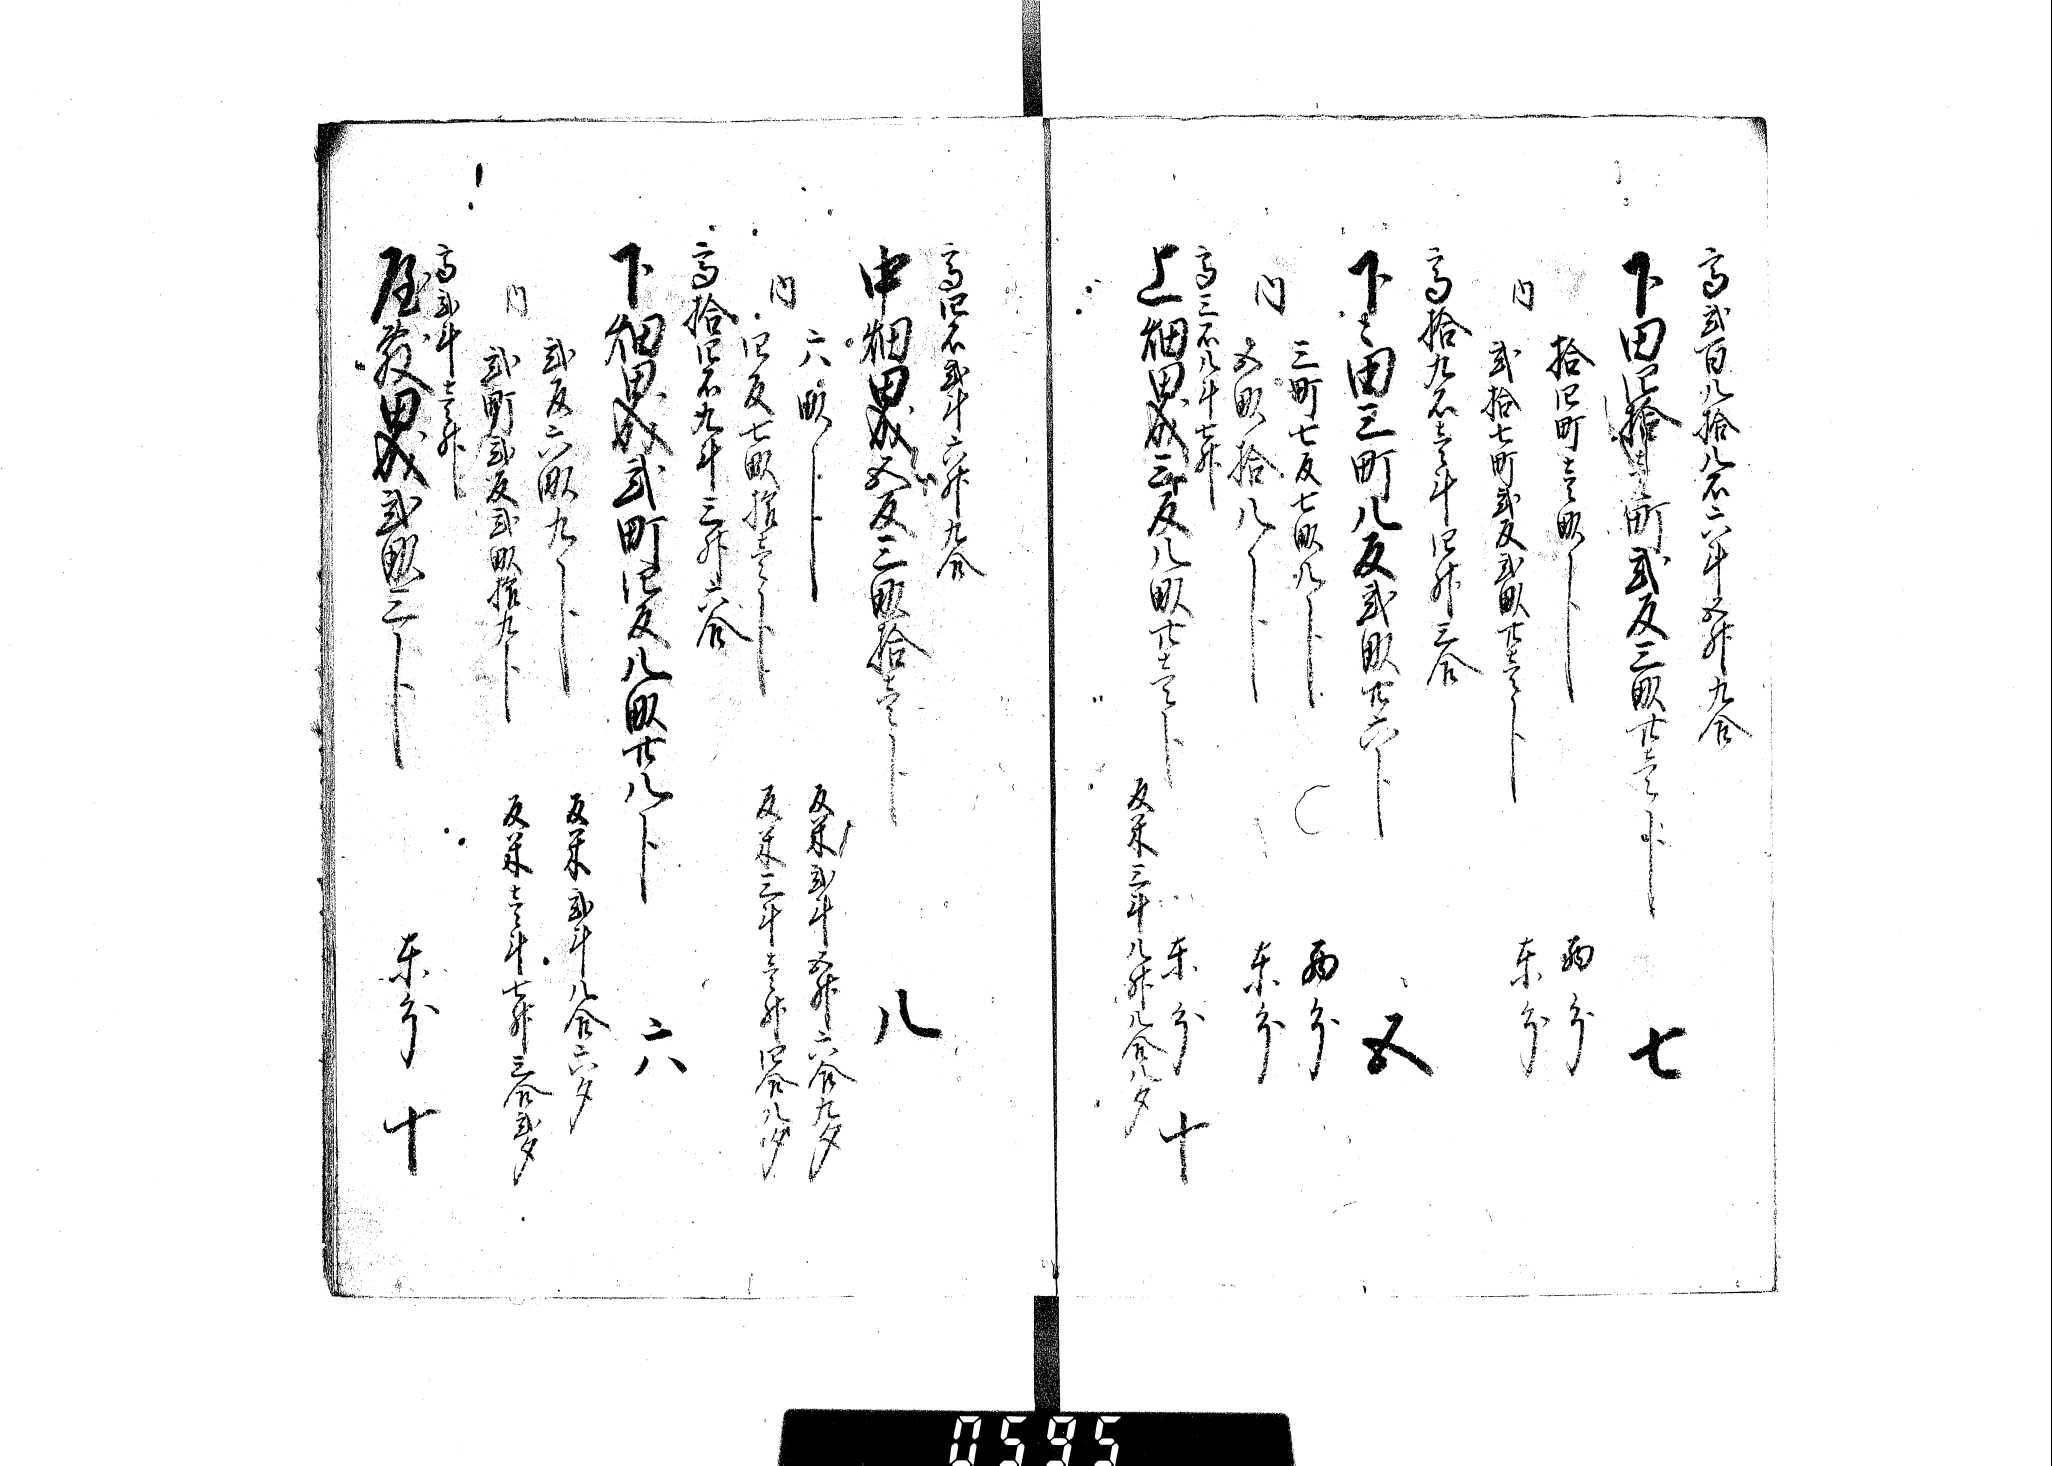 高弐百八拾八石六斗五升九合
下田四拾壱町弐反三畝廿壱卜 七
拾四町壱畝卜 西分
内
弐拾七町弐反弐畝廿壱卜 東分
高拾九石壱斗四升三合
下々田三町八反弐畝廿六卜 五
三町七反七畝八卜 西分
内
五畝拾八卜 東分
高三石八斗七升
上畑田成三反八畝廿壱卜 東分 十
反米三斗八升八合八夕
高四石弐斗六升九合
中畑田成五反三畝拾壱卜 八
六畝卜 反米弐斗五升六合九夕
内
四反七畝拾壱卜 反米三斗壱升四合八夕
高拾四石九斗三升六合
下畑田成弐町四反八畝廿八卜 六
弐反六畝九卜 反米弐斗八合六夕
内
弐町弐反弐畝拾九卜 反米壱斗七升三合弐夕
高弐斗壱升
屋敷田成弐畝三卜 東分 十
0595